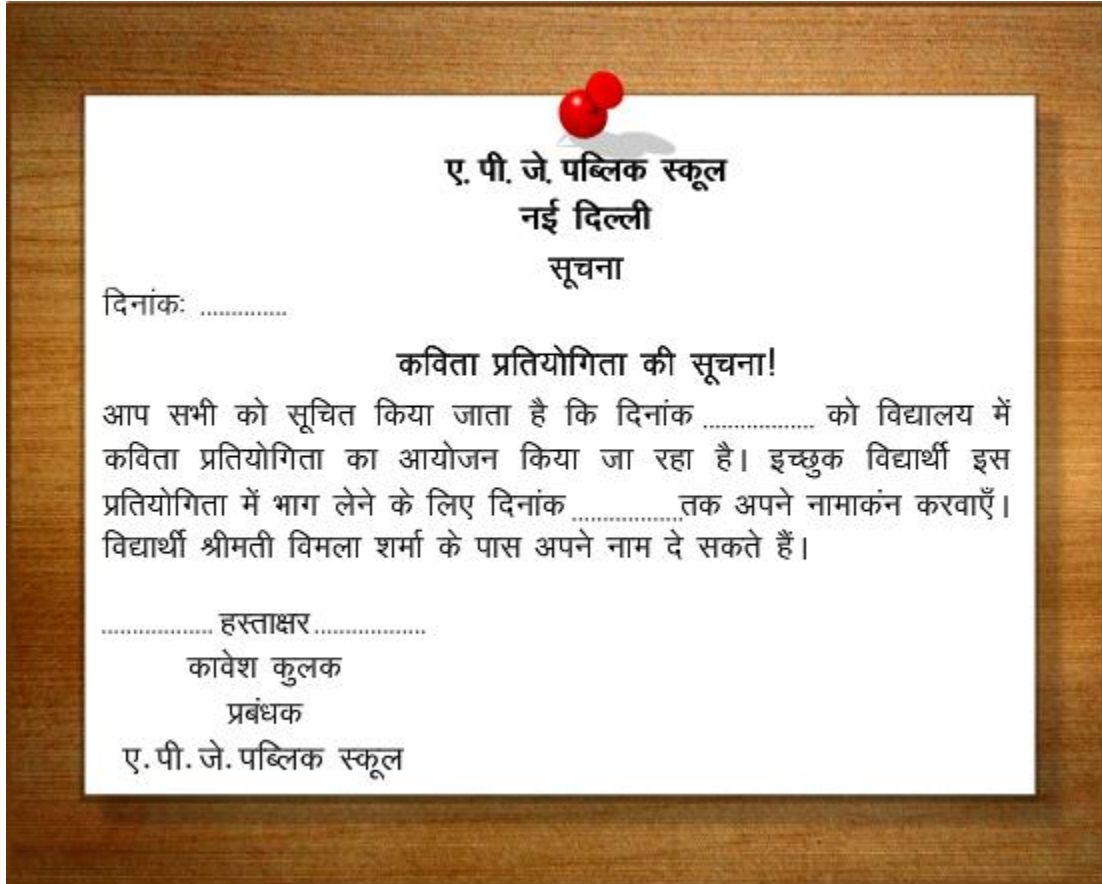 ए. पी. जे. पब्लिक स्कूल
नई दिल्ली
सूचना
दिनांकः ..............
कविता प्रतियोगिता की सूचना!
आप सभी को सूचित किया जाता है कि दिनांक .................. को विद्यालय में
कविता प्रतियोगिता का आयोजन किया जा रहा है। इच्छुक विद्यार्थी इस
प्रतियोगिता में भाग लेने के लिए दिनांक ..................तक अपने नामाकंन करवाएँ।
विद्यार्थी श्रीमती विमला शर्मा के पास अपने नाम दे सकते हैं।
.................. हस्ताक्षर ..................
कावेश कुलक
प्रबंधक
ए. पी. जे. पब्लिक स्कूल